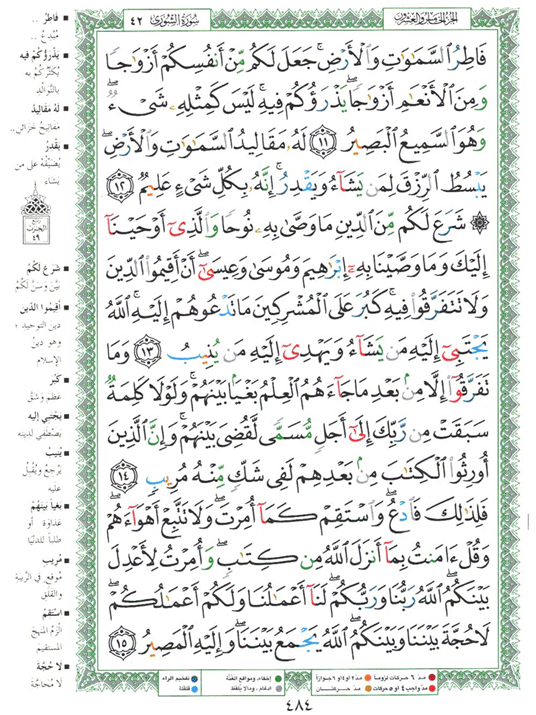 سُورَةُ الشُّورَىٰ
٤٢
فَاطِرُ ٱلسَّمَٰوَٰتِ وَٱلْأَرْضِ ۚ جَعَلَ لَكُم مِّنْ أَنفُسِكُمْ أَزْوَٰجًا
وَمِنَ ٱلْأَنْعَٰمِ أَزْوَٰجًا ۖ يَذْرَؤُكُمْ فِيهِ ۚ لَيْسَ كَمِثْلِهِۦ شَىْءٌ ۖ
وَهُوَ ٱلسَّمِيعُ ٱلْبَصِيرُ ١١ لَهُۥ مَقَالِيدُ ٱلسَّمَٰوَٰتِ وَٱلْأَرْضِ ۖ
يَبْسُطُ ٱلرِّزْقَ لِمَن يَشَآءُ وَيَقْدِرُ ۚ إِنَّهُۥ بِكُلِّ شَىْءٍ عَلِيمٌ ١٢
۞ شَرَعَ لَكُم مِّنَ ٱلدِّينِ مَا وَصَّىٰ بِهِۦ نُوحًا وَٱلَّذِىٓ أَوْحَيْنَآ
إِلَيْكَ وَمَا وَصَّيْنَا بِهِۦٓ إِبْرَٰهِيمَ وَمُوسَىٰ وَعِيسَىٰٓ ۖ أَنْ أَقِيمُوا۟ ٱلدِّينَ
وَلَا تَتَفَرَّقُوا۟ فِيهِ ۚ كَبُرَ عَلَى ٱلْمُشْرِكِينَ مَا تَدْعُوهُمْ إِلَيْهِ ۚ ٱللَّهُ
يَجْتَبِىٓ إِلَيْهِ مَن يَشَآءُ وَيَهْدِىٓ إِلَيْهِ مَن يُنِيبُ ١٣ وَمَا
تَفَرَّقُوٓا۟ إِلَّا مِنۢ بَعْدِ مَا جَآءَهُمُ ٱلْعِلْمُ بَغْيًۢا بَيْنَهُمْ ۚ وَلَوْلَا كَلِمَةٌ
سَبَقَتْ مِن رَّبِّكَ إِلَىٰٓ أَجَلٍ مُّسَمًّى لَّقُضِىَ بَيْنَهُمْ ۚ وَإِنَّ ٱلَّذِينَ
أُورِثُوا۟ ٱلْكِتَٰبَ مِنۢ بَعْدِهِمْ لَفِى شَكٍّ مِّنْهُ مُرِيبٍ ١٤
فَلِذَٰلِكَ فَٱدْعُ ۖ وَٱسْتَقِمْ كَمَآ أُمِرْتَ ۖ وَلَا تَتَّبِعْ أَهْوَآءَهُمْ ۖ
وَقُلْ ءَامَنتُ بِمَآ أَنزَلَ ٱللَّهُ مِن كِتَٰبٍ ۖ وَأُمِرْتُ لِأَعْدِلَ
بَيْنَكُمُ ۖ ٱللَّهُ رَبُّنَا وَرَبُّكُمْ ۖ لَنَآ أَعْمَٰلُنَا وَلَكُمْ أَعْمَٰلُكُمْ ۖ
لَا حُجَّةَ بَيْنَنَا وَبَيْنَكُمُ ۖ ٱللَّهُ يَجْمَعُ بَيْنَنَا ۖ وَإِلَيْهِ ٱلْمَصِيرُ ١٥
فَاطِرُ ..
مُبْدِعُ ..
يَذْرَؤُكُمْ فِيهِ
يُكَثِّرُكُمْ بِه
بالتَّوالُد
لَهُ مَقَالِيدُ
مفاتيحُ خَزائن ..
يَقْدِرُ
يُضَيِّقُهُ على من
يشاء
ربع
الحزب
٤٩
شَرَعَ لَكُمْ
بَيَّنَ وسَنَّ لكُمْ
أقِيمُوا الدِّين
دين التوحيد ،
وهو دينُ
الإسلام
كَبُرَ
عَظُمَ وشَقَّ
يَجْتَبِي إليه
يصْطفي لدينه
يُنِيبُ
يرجعُ ويُقْبِلُ
عليه
بَغْياً بَيْنَهُمْ
عداوة أو
طلباً للدّنيا
مُرِيبٍ
مُوقعٍ في الرِّيبة
والقلق
اسْتَقِمْ
الْزَمِ المنهجَ
المستقيم
لا حُجَّةَ
لا مُحاجَّة
مدّ ٦ حركات لزوماً
مدّ ٢ أو ٤ أو ٦ جوازاً
إخفاء، ومواقع الغُنَّة
تفخيم الراء
مدّ واجب ٤ أو ٥ حركات
مدّ حركتان
إدغام، وما لا يُلفظ
قلقلة
٤٨٤